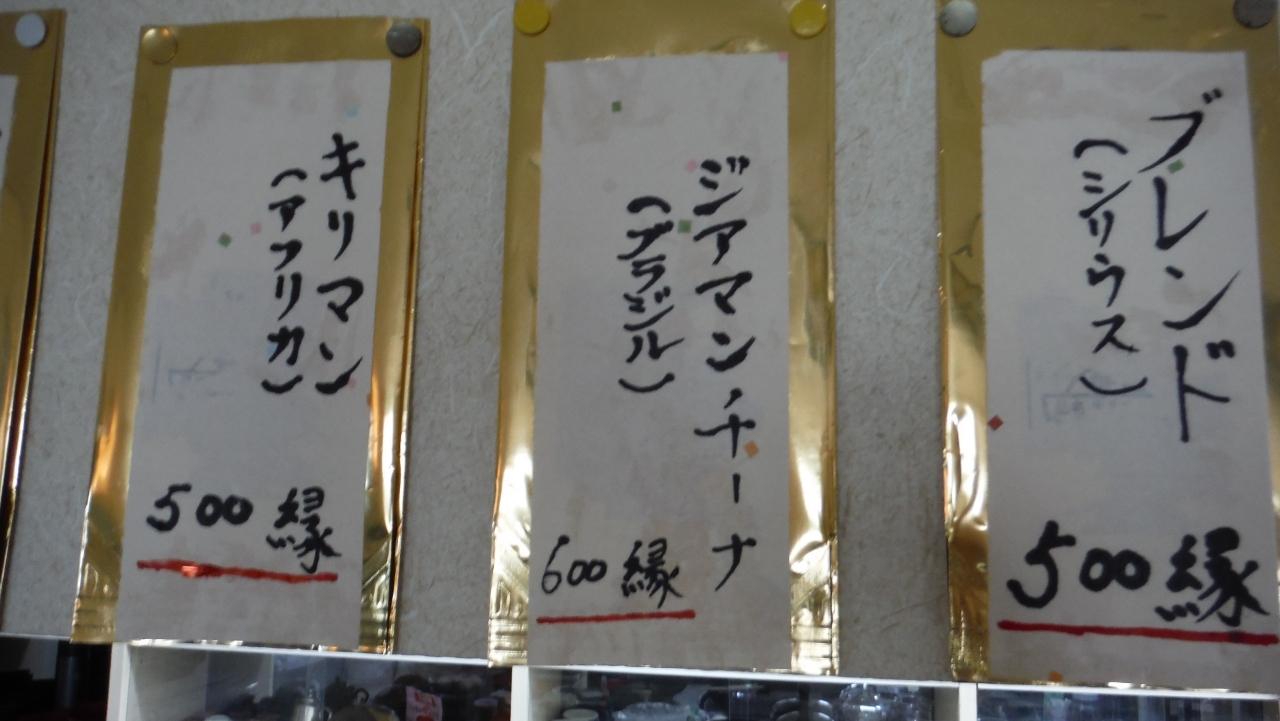 ブレンド
(シリウス)
500縁
ジアマンチーナ
(ブラジル)
600縁
キリマン
(アフリカ)
500縁